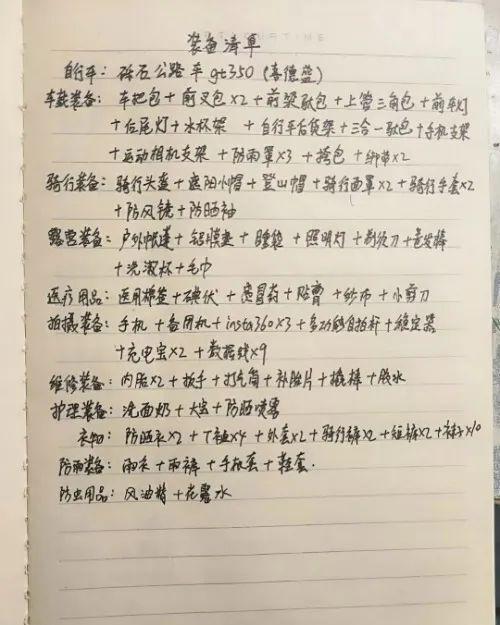 装备清单
自行车：砾石公路车gt350（喜德盛）
车载装备：车把包+前叉包x2+前梁驮包+上管三角包+前车灯
+后尾灯+水杯架+自行车后货架+三合一驮包+手机支架
+运动相机支架+防雨罩x3+挎包+绑带x2
骑行装备：骑行头盔+遮阳小帽+登山帽+骑行面罩x2+骑行手套x2
+防风镜+防晒袖
露营装备：户外帐篷+铝膜垫+睡袋+照明灯+刮纹刀+卷发棒
+洗漱杯+毛巾
医疗用品：医用棉签+碘伏+感冒药+贴膏+纱布+小剪刀
拍摄装备：手机+备用机+insta360x3+多功能自拍杆+稳定器
+充电宝x2+数据线x9
维修装备：内胎x2+扳手+打气筒+补胎片+撬棒+胶水
护理装备：洗面奶+大宝+防晒喷雾
衣物：防晒衣x2+T恤x4+外套x2+骑行裤x2+短裤x2+袜子x10
防雨装备：雨衣+雨裤+手机套+鞋套.
防虫用品：风油精+花露水